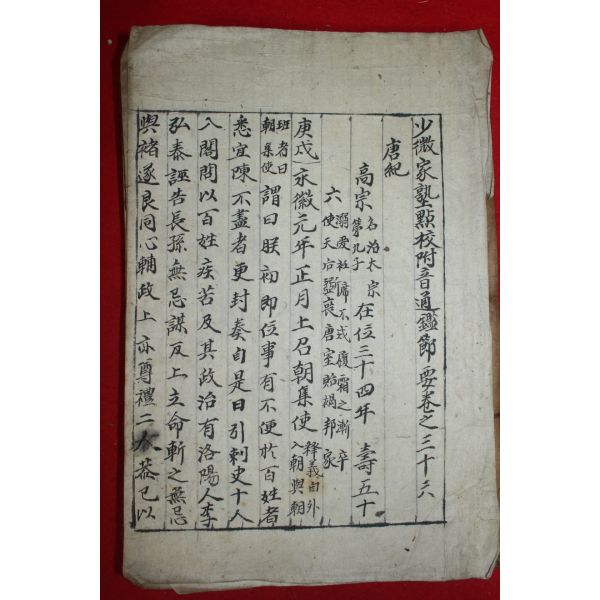 少微家塾點校附音通鑑節要卷之三十六
唐紀
高宗 名治太宗第九子 在位三十四年 壽五十
六 溺愛衽席不戒履霜之漸卒使天后斲喪唐室貽禍邦家
庚戌 永徽元年正月上召朝集使 釋義自外入朝與朝
班者曰朝集使 謂曰朕初即位事有不便於百姓者
悉宜陳不盡者更封奏自是日引刺史十人
入閤問以百姓疾苦及其政治有洛陽人李
弘泰誣告長孫無忌謀反上立命斬之無忌
與褚遂良同心輔政上亦尊禮二人恭己以